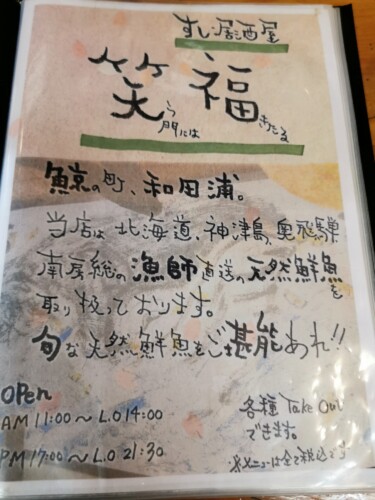 すし居酒屋
笑う門には福きたる
鯨の町、和田浦。
当店は北海道、神津島、奥飛騨
南房総の漁師直送の天然鮮魚を
取り扱っております。
旬な天然鮮魚をご堪能あれ!!
OPen
AM 11:00〜L.O 14:00
PM 17:00〜L.O 21:30
各種 Take Out
できます。
※メニューは全て税込です